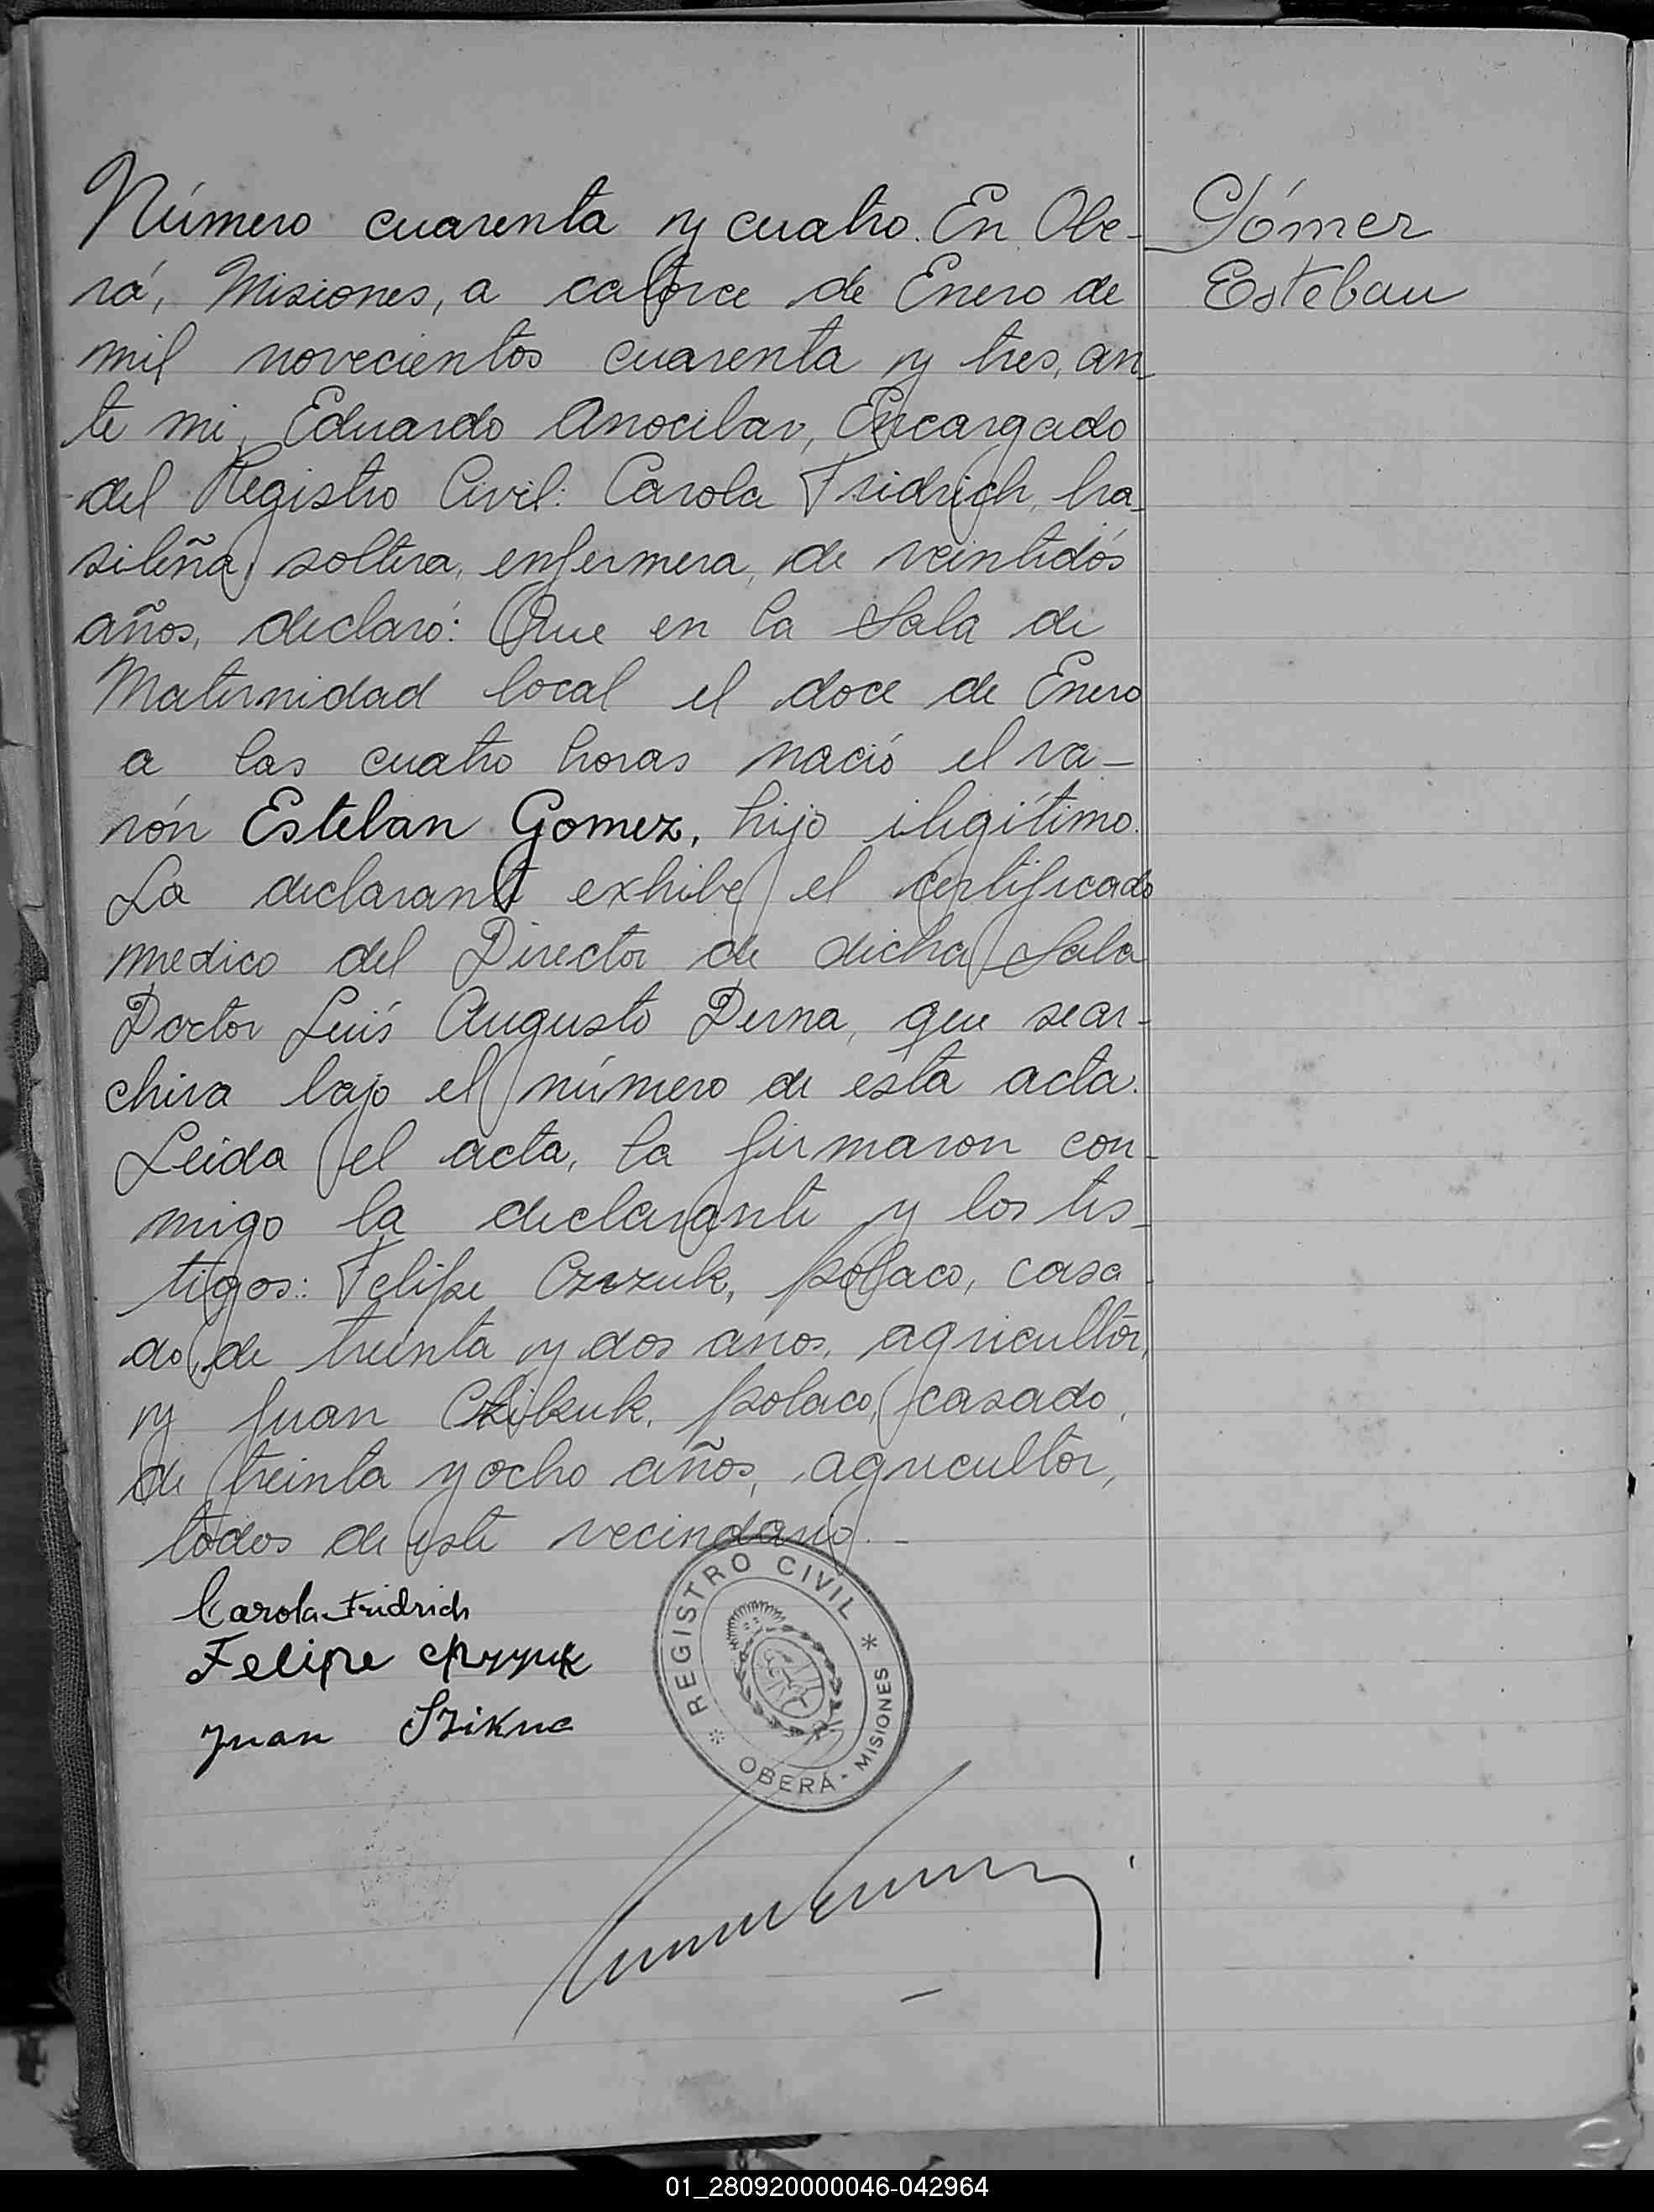 Número cuarenta y cuatro. En Obe-
rá, Misiones, a catorce de Enero de
mil novecientos cuarenta y tres, an-
te mi, Eduardo Anocibar, Encargado
del Registro Civil: Carola Fridrich, bra-
sileña, soltera, enfermera, de veintidós
años, declaró: Que en la Sala de
Maternidad local el doce de Enero
a las cuatro horas nació el va-
rón Esteban Gomez, hijo ilegítimo.
La declarante exhibe el certificado
medico del Director de dicha Sala
Doctor Luís Augusto Derna, que se ar-
chiva bajo el número de esta acta.
Leida el acta, la firmaron con-
migo la declarante y los tes-
tigos: Felipe Czyzuk, polaco, casa-
do, de treinta y dos años, agricultor,
y Juan polaco, casado,
de treinta y ocho años, agricultor,
todos de este vecindario.-
Gómez
Esteban
Carola Fridrich
Felipe
Juan
REGISTRO CIVIL
OBERÁ - MISIONES
01_280920000046-042964